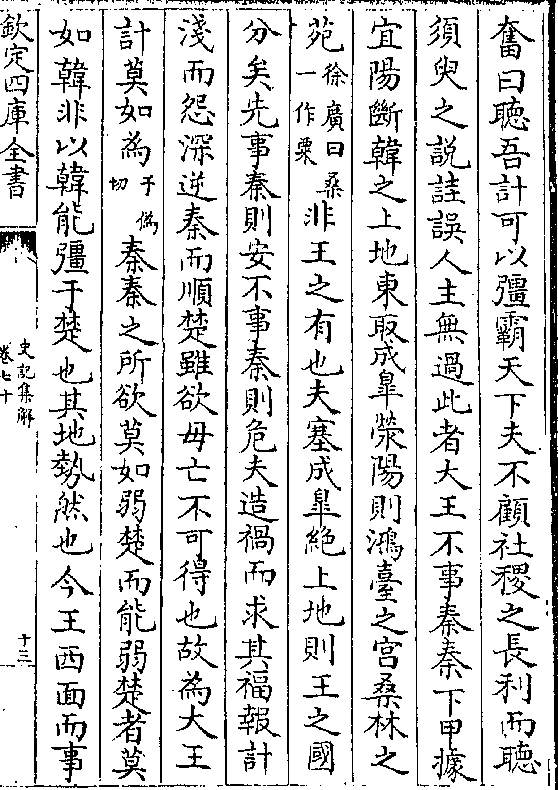 奮曰聽吾計可以彊霸天下夫不顧社稷之長利而聽
須臾之說詿誤人主無過此者大王不事秦秦下甲據
宜陽斷韓之上地東取成臯滎陽則鴻臺之宮桑林之
苑徐廣曰桑一作栗非王之有也夫塞成臯絶上地則王之國
分矣先事秦則安不事秦則危夫造禍而求其福報計
淺而怨深逆秦而順楚雖欲毋亡不可得也故為大王
計莫如為于偽切秦秦之所欲莫如弱楚而能弱楚者莫
如韓非以韓能彊于楚也其地勢然也今王西面而事
欽定四庫全書
史記集解
卷七十
十三